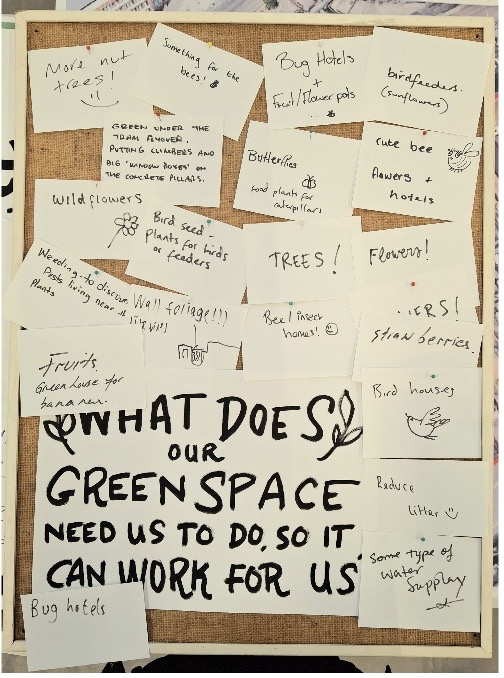 More nut
trees!
Something for the
bees!
Bug Hotels
+
Fruit/Flower pots
birdfeeders.
(sunflowers)
GREEN UNDER THE
TRAM FLYOVER.
PUTTING CLIMBERS AND
BIG 'WINDOW BOXES' ON
THE CONCRETE PILLARS.
Butterflies
food plants for
caterpillars
cute bee
flowers +
hotels
wildflowers
Bird seed -
plants for birds
or feeders
TREES!
Flowers!
Weeding - to
Pests living near
Plants
Wall foliage!!!
Bee/insect
homes!
ERS!
strawberries.
Fruits
Greenhouse for
bananas.
Bird houses
WHAT DOES
OUR
GREEN SPACE
NEED US TO DO, SO IT
CAN WORK FOR US
Reduce
litter
Some type of
water
Supplay
Bug hotels